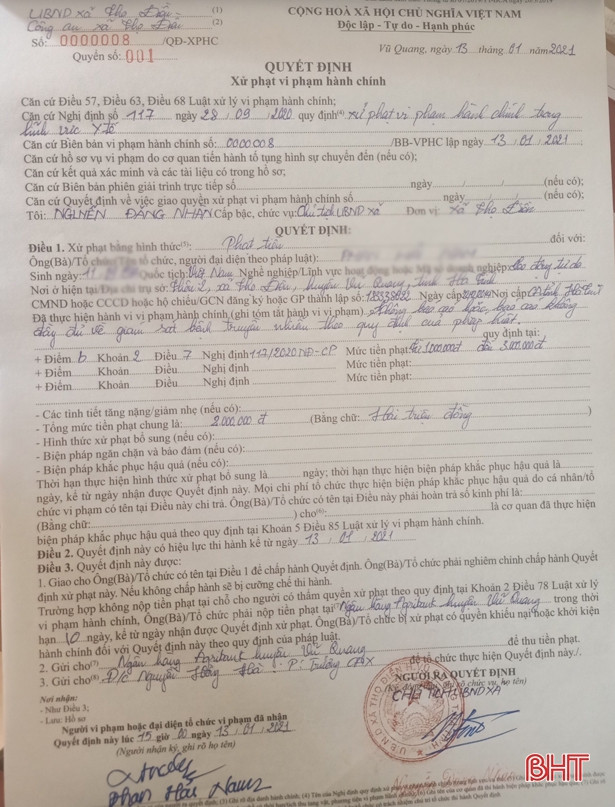 UBND xã Thọ Điền (1)
Công an xã Thọ Điền (2)
Số: 0000008 /QĐ-XPHC
Quyển số: 001
CỘNG HOÀ XÃ HỘI CHỦ NGHĨA VIỆT NAM
Độc lập - Tự do - Hạnh phúc
Vũ Quang, ngày 13 tháng 01 năm 2021
QUYẾT ĐỊNH
Xử phạt vi phạm hành chính
Căn cứ Điều 57, Điều 63, Điều 68 Luật xử lý vi phạm hành chính;
Căn cứ Nghị định số 117 ngày 28, 09, 2020 quy định(4) xử phạt vi phạm hành chính trong
lĩnh vực Y tế
Căn cứ Biên bản vi phạm hành chính số: 0000008 /BB-VPHC lập ngày 13, 01, 2021
Căn cứ hồ sơ vụ vi phạm do cơ quan tiến hành tố tụng hình sự chuyển đến (nếu có);
Căn cứ kết quả xác minh và các tài liệu có trong hồ sơ;
Căn cứ Biên bản phiên giải trình trực tiếp số ngày / / (nếu có);
Căn cứ Quyết định về việc giao quyền xử phạt vi phạm hành chính số ngày / / (nếu có);
Tôi: NGUYỄN ĐĂNG NHÀN Cấp bậc, chức vụ: Chủ tịch UBND xã Đơn vị: xã Thọ Điền
QUYẾT ĐỊNH:
Điều 1. Xử phạt bằng hình thức(5): Phạt tiền đối với:
Ông(Bà)/Tổ chức, người đại diện theo pháp luật):
Sinh ngày: 11 Quốc tịch: Việt Nam Nghề nghiệp/Lĩnh vực hoạt động nghiệp: lao động tự do
Nơi ở hiện tại/Địa chỉ trụ sở: Thôn 2, xã Thọ Điền, huyện Vũ Quang, tỉnh Hà Tĩnh
CMND hoặc CCCD hoặc hộ chiếu/GCN đăng ký hoặc GP thành lập số: Ngày cấp Nơi cấp CA tỉnh Hà Tĩnh
Đã thực hiện hành vi vi phạm hành chính (ghi tóm tắt hành vi vi phạm): Không báo cáo hoặc báo cáo không
đầy đủ về giám sát bệnh truyền nhiễm theo quy định của pháp luật.
quy định tại:
+ Điểm b Khoản 2 Điều 7 Nghị định 117/2020/NĐ-CP Mức tiền phạt: từ 1.000.000đ đến 3.000.000đ
+ Điểm Khoản Điều Nghị định Mức tiền phạt:
+ Điểm Khoản Điều Nghị định Mức tiền phạt:
- Các tình tiết tăng nặng/giảm nhẹ (nếu có):
- Tổng mức tiền phạt chung là: 2.000.000 đ (Bằng chữ: Hai triệu đồng )
- Hình thức xử phạt bổ sung (nếu có):
- Biện pháp ngăn chặn và bảo đảm (nếu có):
- Biện pháp khắc phục hậu quả (nếu có):
Thời hạn thực hiện hình thức xử phạt bổ sung là ngày; thời hạn thực hiện biện pháp khắc phục hậu quả là
ngày, kể từ ngày nhận được Quyết định này. Mọi chi phí tổ chức thực hiện biện pháp khắc phục hậu quả do cá nhân/tổ
chức vi phạm có tên tại Điều này chi trả. Ông(Bà)/Tổ chức có tên tại Điều này phải hoàn trả số kinh phí là:
(Bằng chữ: ) cho(6): là cơ quan đã thực hiện
biện pháp khắc phục hậu quả theo quy định tại Khoản 5 Điều 85 Luật xử lý vi phạm hành chính.
Điều 2. Quyết định này có hiệu lực thi hành kể từ ngày 13, 01, 2021
Điều 3. Quyết định này được:
1. Giao cho Ông(Bà)/Tổ chức có tên tại Điều 1 để chấp hành Quyết định. Ông(Bà)/Tổ chức phải nghiêm chỉnh chấp hành Quyết
định xử phạt này. Nếu không chấp hành sẽ bị cưỡng chế thi hành.
Trường hợp không nộp tiền phạt tại chỗ cho người có thẩm quyền xử phạt theo quy định tại Khoản 2 Điều 78 Luật xử lý
vi phạm hành chính, Ông(Bà)/Tổ chức phải nộp tiền phạt tại Ngân hàng Agribank huyện Vũ Quang trong thời
hạn 10 ngày, kể từ ngày nhận được Quyết định xử phạt. Ông(Bà)/Tổ chức bị xử phạt có quyền khiếu nại hoặc khởi kiện
hành chính đối với Quyết định này theo quy định của pháp luật.
2. Gửi cho(7) Ngân hàng Agribank huyện Vũ Quang để thu tiền phạt.
3. Gửi cho(8) Đ/c Nguyễn Hồng Hà - P. Trưởng CAX để tổ chức thực hiện Quyết định này./.
Nơi nhận:
- Như Điều 3;
- Lưu: Hồ sơ
NGƯỜI RA QUYẾT ĐỊNH
CHỦ TỊCH UBND XÃ
Người vi phạm hoặc đại diện tổ chức vi phạm đã nhận
Quyết định này lúc 15 giờ 00 ngày 13, 01, 2021
(Người nhận ký, ghi rõ họ tên)
Phan Hải Nam
BHT